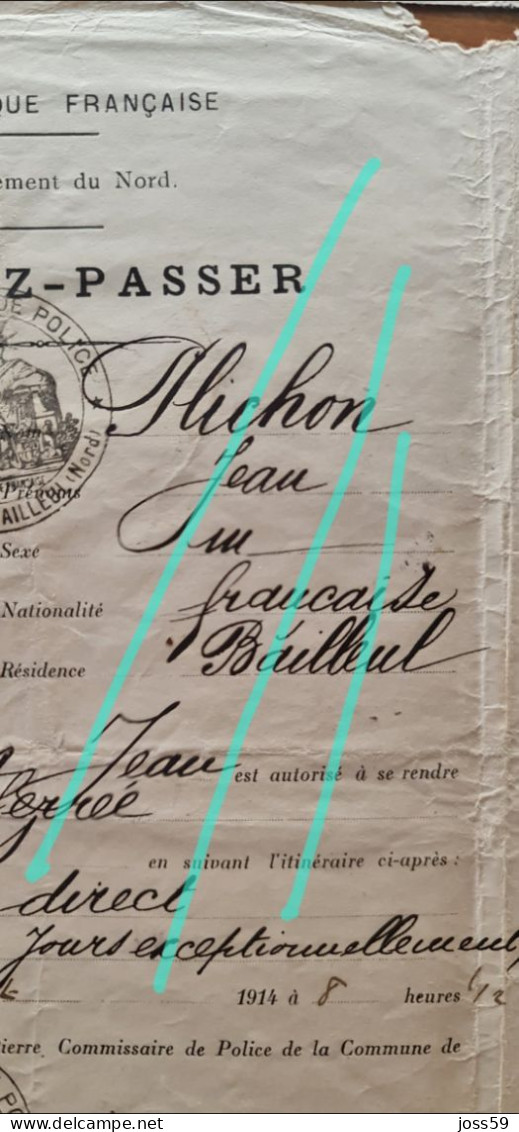 QUE FRANÇAISE
ement du Nord.
Z-PASSER
DE POLICE
BAILLEUL (Nord)
Plichon
Prénoms Jean
Sexe m
Nationalité française
Résidence Bailleul
Jean est autorisé à se rendre
en suivant l'itinéraire ci-après :
direct
Jours exceptionnellement,
1914 à 8 heures 1/2
ierre, Commissaire de Police de la Commune de
joss59